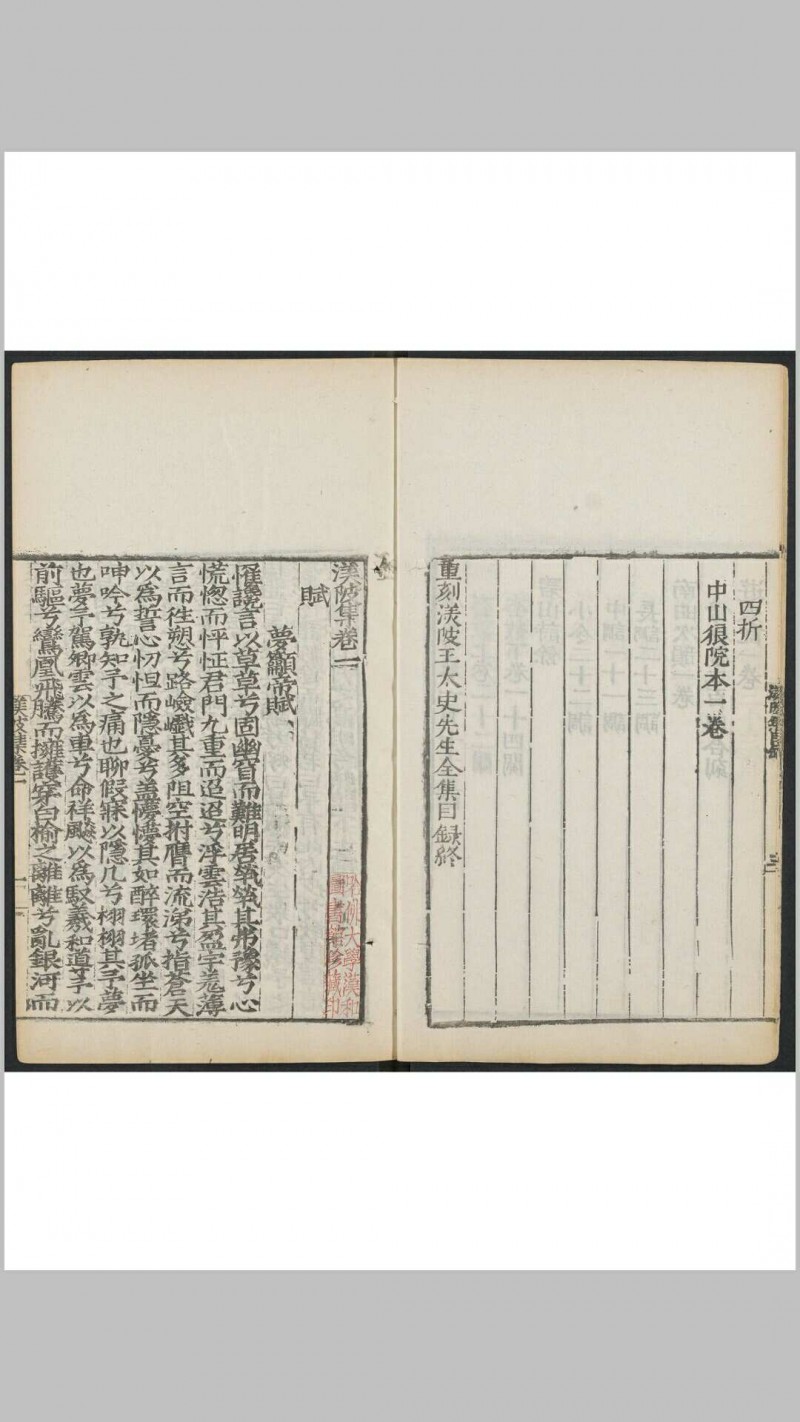 四折
中山狼院本一卷
重刻渼陂王太史先生全集目録終
渼陂集卷一
賦
夢籲帝賦
罹讒言以草草兮固幽窅而難明居煢煢其弗豫兮心
慌惚而怦怔君門九重而迢迢兮浮雲浩其盈宇羗薄
言而徃愬兮路嶮巇其多阻空拊膺而流涕兮指蒼天
以爲誓心忉怛而隱憂兮盖懜懜其如醉環堵孤坐而
呻吟兮孰知予之痛也聊假寐以隱几兮栩栩其予夢
也夢予駕卿雲以爲車兮命祥飈以爲馭羲和導予以
前驅兮鸞凰飛騰而擁護穿白榆之離離兮亂銀河而
渼陂集卷一
一
哈佛大學漢和
圖書館珍藏印